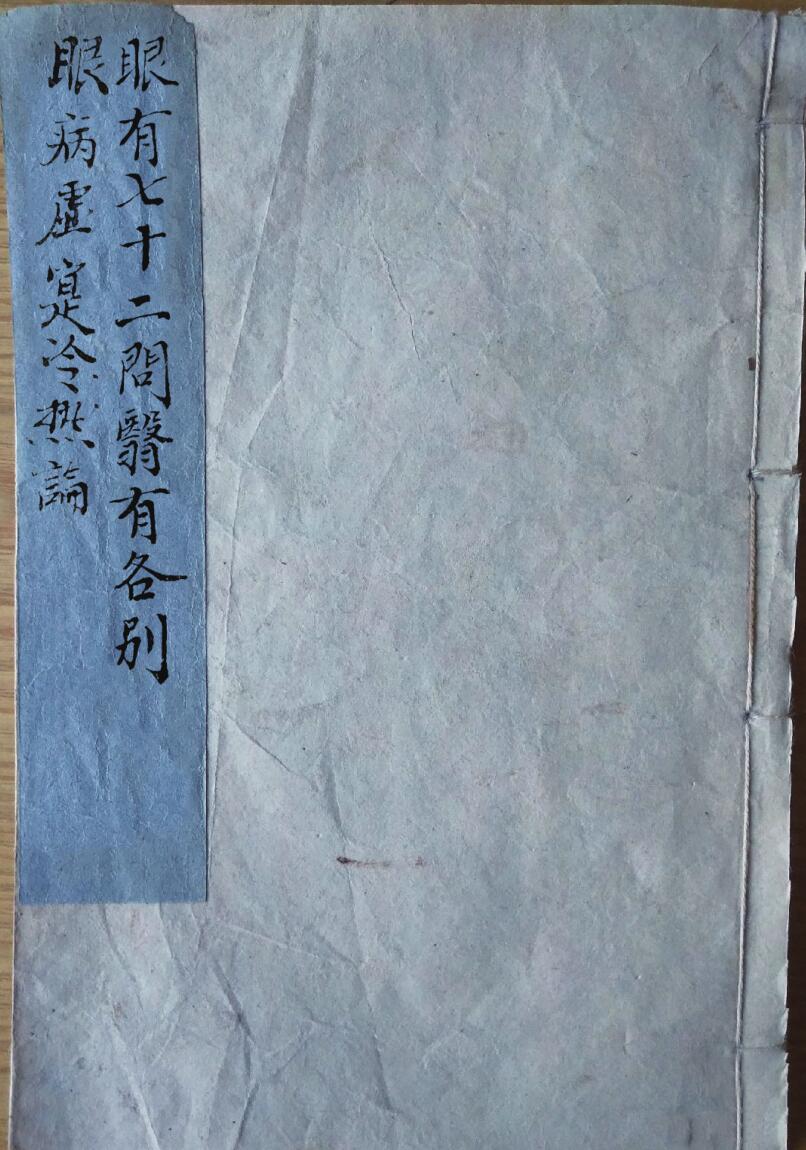 眼有七十二問翳有各別
眼病虛寔冷热論